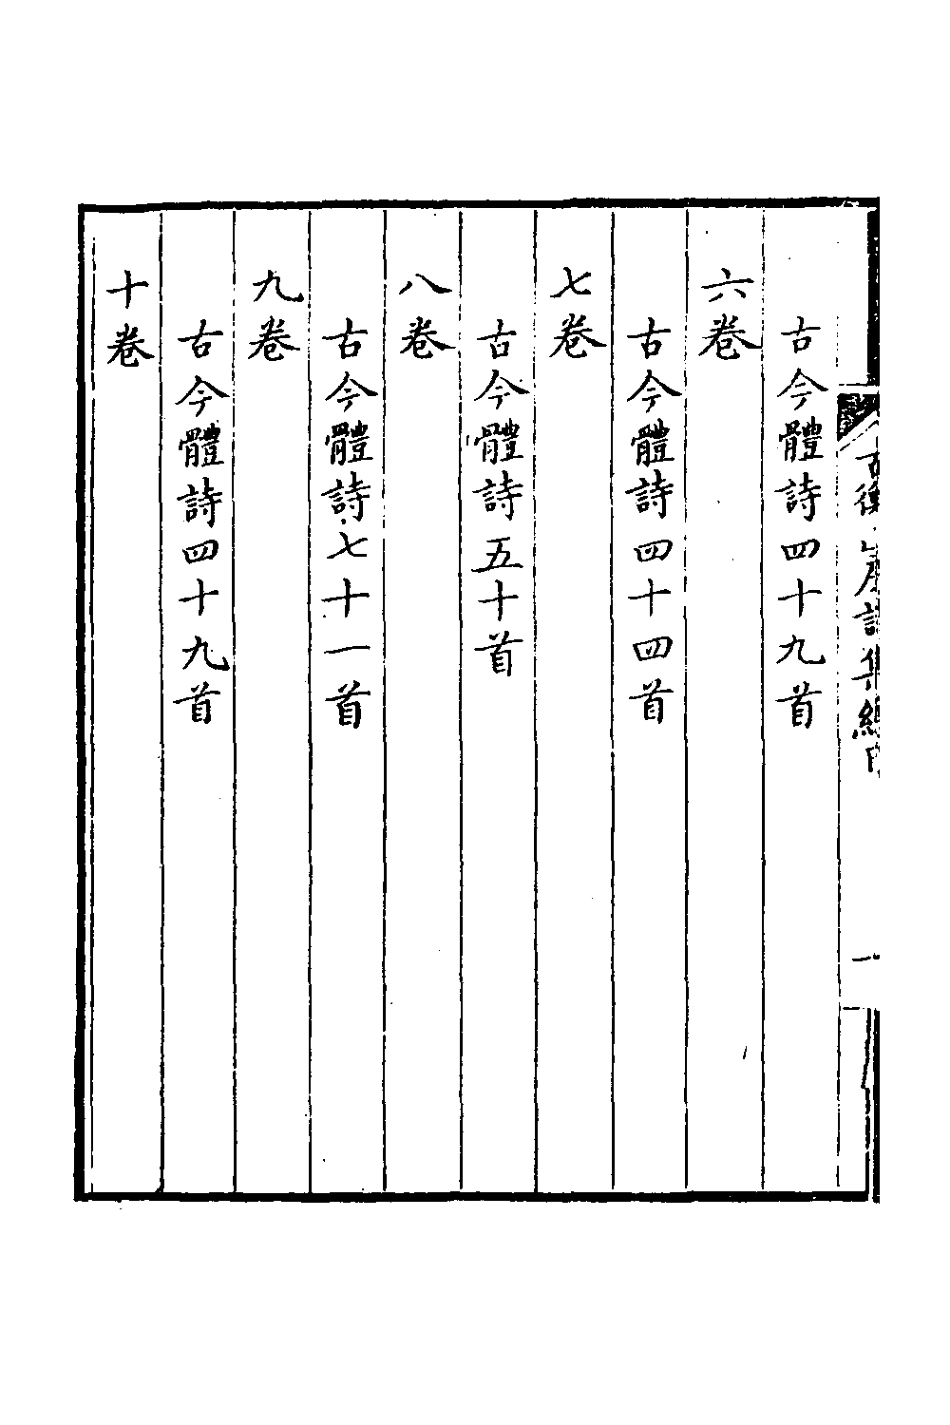 古今體詩四十九首
六卷
古今體詩四十四首
七卷
古今體詩五十首
八卷
古今體詩七十一首
九卷
古今體詩四十九首
十卷
詩集總目
一